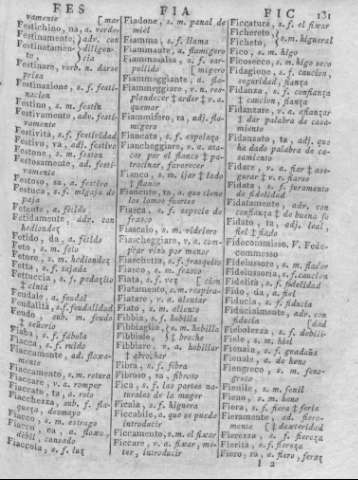 FES
FIA
FIC 131
vamente [mar
Festichino, na, a. verdo
Festinamento, } adv. con
Festinatamen-} diligen-
to, } cia
Festinare, verb. n. darse
prisa
Festinazione, s. f. festi-
nacion
Festino, s. m. festin
Festivamente, adv. festi-
vamente
Festività, s. f. festividad
Festivo, va, adj. festivo
Festone, s. m. feston
Festosamente, ad. festi-
vamente
Festoso, sa, a. festivo
Festuca, s. f. migaja de
paja
Fetente, a. fetido
Fetidamente, adv. con
hediondez
Fetido, da, a. fetido
Feto, s. m. feto
Fetore, s. m. hediondez
Fetta, s. f. tajada
Fettuccia, s. f. pedacillo
‡ cinta
Feudale, a. feudal
Feudalità, s. f. feudalidad
Feudo, sub. m. feudo
‡ señorio
Fiaba, s. f. fábula
Fiacca, s. f. ruido
Fiaccamente, ad. floxa-
mente
Fiaccamento, s. m. rotura
Fiaccare, v. a. romper
Fiaccato, ta, a. roto
Fiacchezza, sub. f. fla-
queza, desmayo
Fiacco, s. m. estrago
Fiacco, ca, a. floxo,
debil, cansado
Fiaccola, s. f. luz
Fiadone, s. m. panal de
miel
Fiamma, s. f. llama
Fiammante, a. flamigero
Fiammasalsa, s. f. sar-
pullido [migero
Fiammeggiante, a. fla-
Fiammeggiare, v. n. res-
plandecer ‡ arder ‡ v. a.
quemar
Fiammifero, ra, adj. fla-
migero
Fiancata, s. f. espolazo
Fiancheggiare, v. a. ata-
car por el flanco ‡ pa-
trocinar, favorecer
Fianco, s. m. ijar ‡ lado
‡ flanco
Fiancuto, ta, a. que tiene
los lomos fuertes
Fiasca, s. f. especie de
frasco
Fiascaio, s. m. vidriero
Fiascheggiare, v. a. com-
prar vino por menor
Fiaschetta, s. f. frasquillo
Fiasco, s. m. frasco
Fiata, s. f. vez [cion
Fiatamento, s. m. respira-
Fiatare, v. a. alentar
Fiato, s. m. aliento
Fibbia, s. f. hebilla
Fibbiaglia, } s. m. hebilla
Fibbiale, } ‡ broche
Fibbiare, v. a. habillar
‡ abrochar
Fibra, s. f. fibra
Fibroso, sa, fibroso
Fica, s. f. las partes na-
turales de la muger
Ficaia, s. f. higuera
Ficcabile, a. que se puede
introducir
Ficcamento, s. m. el fixar
Ficcare, v. a. fixar, me-
ter, introducir
Ficcatura, s. f. el fixar
Fichereto, }
Ficheto, } s. m. higueral
Fico, s. m. higo
Ficosecco, s. m. higo seco
Fidagione, s. f. caucion,
seguridad, fianza
Fidanza, s. f. confianza
‡ caucion, fianza
Fidanzare, v. a. afianzar
‡ dar palabra de casa-
miento
Fidanzato, ta, adj. que
ha dado palabra de ca-
samiento
Fidare, v. a. fiar ‡ ase-
gurar ‡ v. r. fiarse
Fidata, s. f. juramento
de fidelidad
Fidatamente, adv. con
confianza ‡ de buena fe
Fidato, ta, adj. leal,
fiel ‡ fiado
Fidecommisso, V. Fede-
commesso
Fideiussore, s. m. fiador
Fideiussoria, s. f. caucion
Fidelità, s. f. fidelidad
Fido, da, a. fiel
Fiducia, s. f. fiducia
Fiducialmente, adv. con
fiducia [dad
Fiebolezza, s. f. debili-
Fiele, s. m. hiel
Fienaia, s. f. guadaña
Fienale, s. de heno
Fiengreco, s. m. feno-
greco
Fienile, s. m. fenil
Fieno, s. m. heno
Fiera, s. f. fiera ‡ feria
Fieramente, ad. fiera-
mente [‡ austeridad
Fierezza, s. f. fiereza
Fierità, s. f. fiereza
Fiero, ra, a. fiero, feroz
I 2